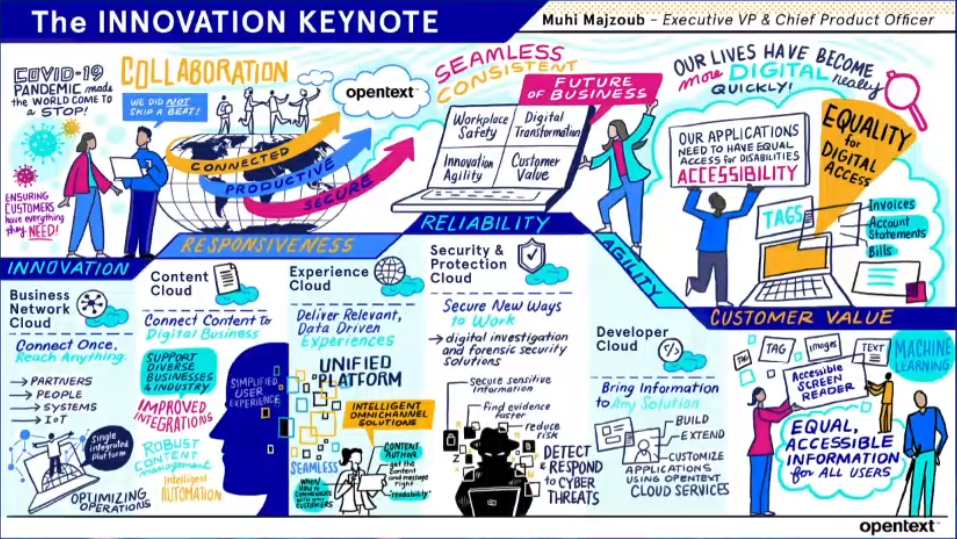 The INNOVATION KEYNOTE
Muhi Majzoub – Executive VP & Chief Product Officer
COVID-19
PANDEMIC made
the WORLD COME to
a STOP!
ENSURING
CUSTOMERS
have everything
they NEED!
COLLABORATION
WE DID NOT
SKIP A BEAT!
opentext™
CONNECTED
PRODUCTIVE
SECURE
SEAMLESS
CONSISTENT
FUTURE
OF BUSINESS
Workplace
Safety
Digital
Transformation
Innovation
Agility
Customer
Value
OUR LIVES HAVE BECOME
more DIGITAL really
QUICKLY!
OUR APPLICATIONS
NEED TO HAVE EQUAL
ACCESS for DISABILITIES
ACCESSIBILITY
EQUALITY
for
DIGITAL
ACCESS
TAGS
Invoices
Account
Statements
Bills
INNOVATION
RESPONSIVENESS
RELIABILITY
AGILITY
CUSTOMER VALUE
Business
Network
Cloud
Connect Once,
Reach Anything.
→ PARTNERS
→ PEOPLE
→ SYSTEMS
→ IoT
Single
integrated
Platform
OPTIMIZING
OPERATIONS
Content
Cloud
Connect Content to
Digital Business
SUPPORT
DIVERSE
BUSINESSES
& INDUSTRY
IMPROVED
INTEGRATIONS
ROBUST
CONTENT
management
Intelligent
AUTOMATION
SIMPLIFIED
USER
EXPERIENCE
Experience
Cloud
Deliver Relevant,
Data Driven
Experiences
UNIFIED
PLATFORM
INTELLIGENT
OMNICHANNEL
SOLUTIONS
SEAMLESS
When/
How to
COMMUNICATE
with your
CUSTOMERS
CONTENT
AUTHOR
get the
content
and message
right
"readability"
Security &
Protection
Cloud
Secure New Ways
to Work
→ digital investigation
and forensic security
solutions
secure sensitive
information
Find evidence
faster
reduce
risk
DETECT
& RESPOND
to CYBER
THREATS
Developer
Cloud
</>
Bring Information
to Any Solution
BUILD
EXTEND
CUSTOMIZE
APPLICATIONS
USING OPENTEXT
CLOUD SERVICES
TAG
TAG
Images
TEXT
MACHINE
LEARNING
Accessible
SCREEN
READER
EQUAL,
ACCESSIBLE
INFORMATION
for ALL USERS
opentext™